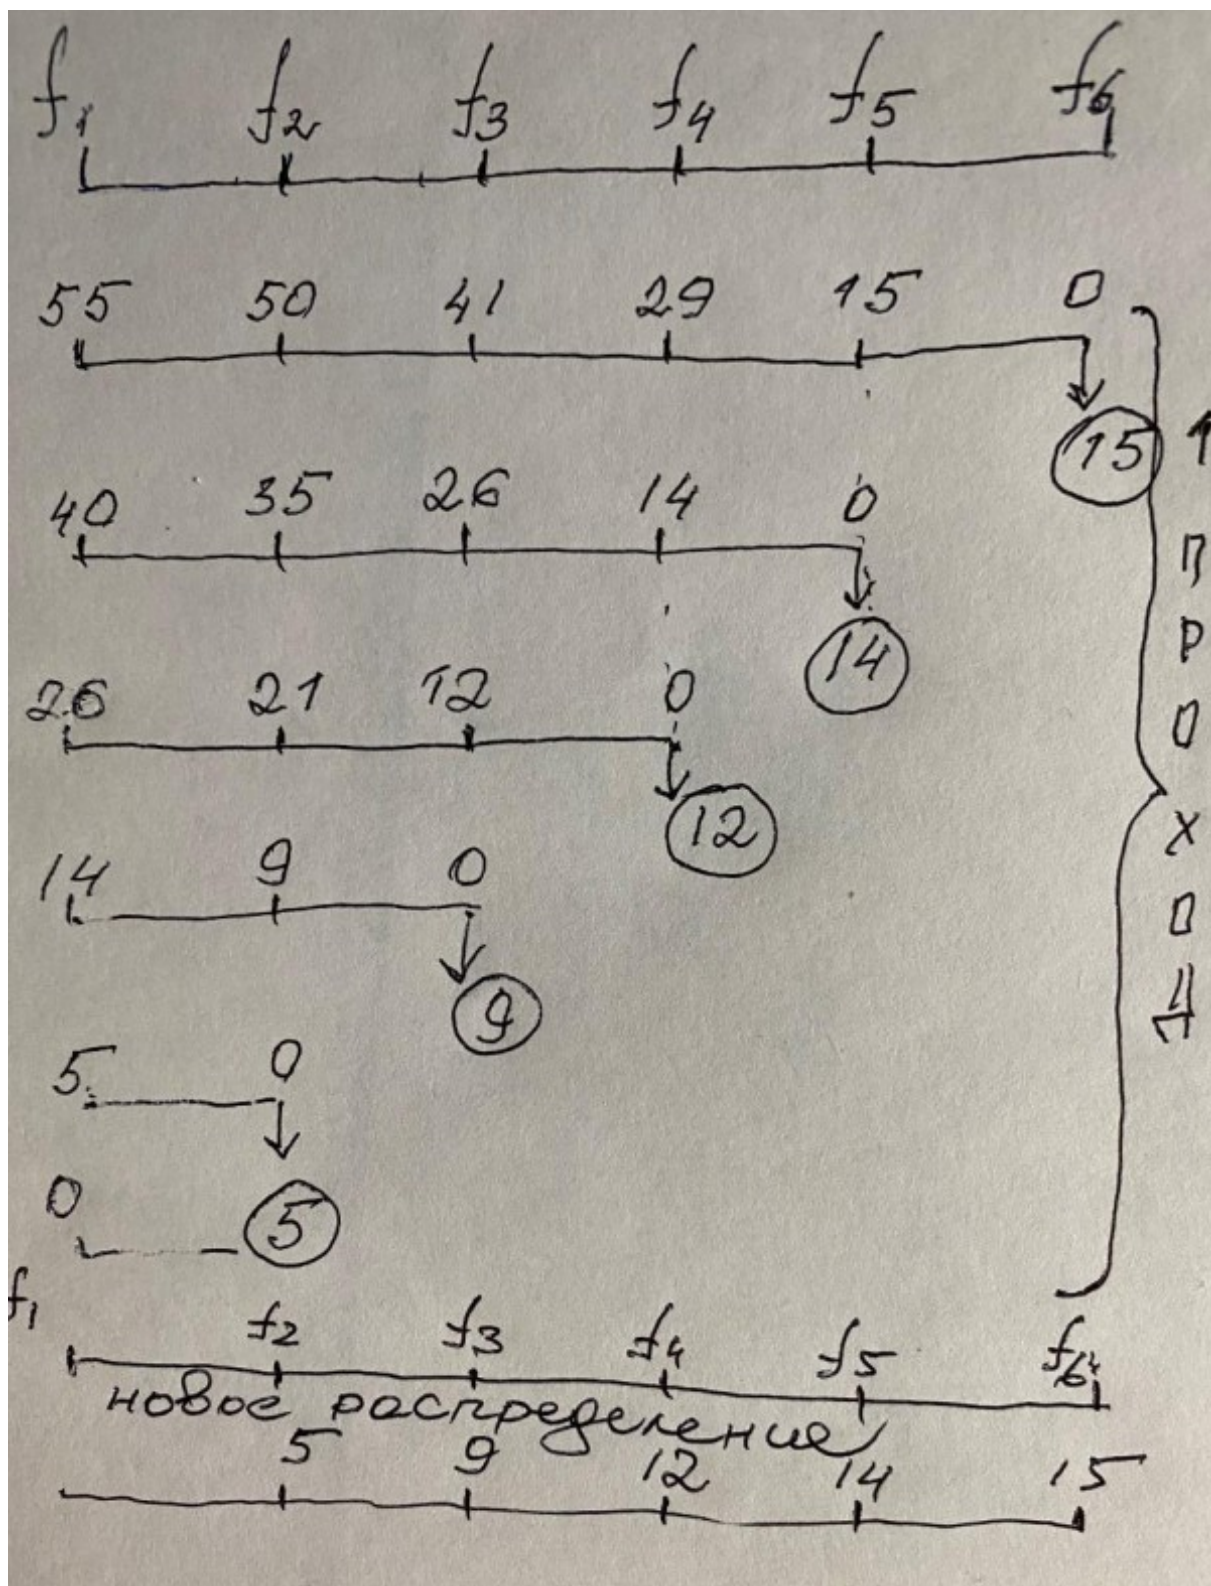 f1 f2 f3 f4 f5 f6
55 50 41 29 15 0
15
40 35 26 14 0
14
26 21 12 0
12
14 9 0
9
5 0
0 5
1 ПРОХОД
f1 f2 f3 f4 f5 f6
новое распределение
5 9 12 14 15